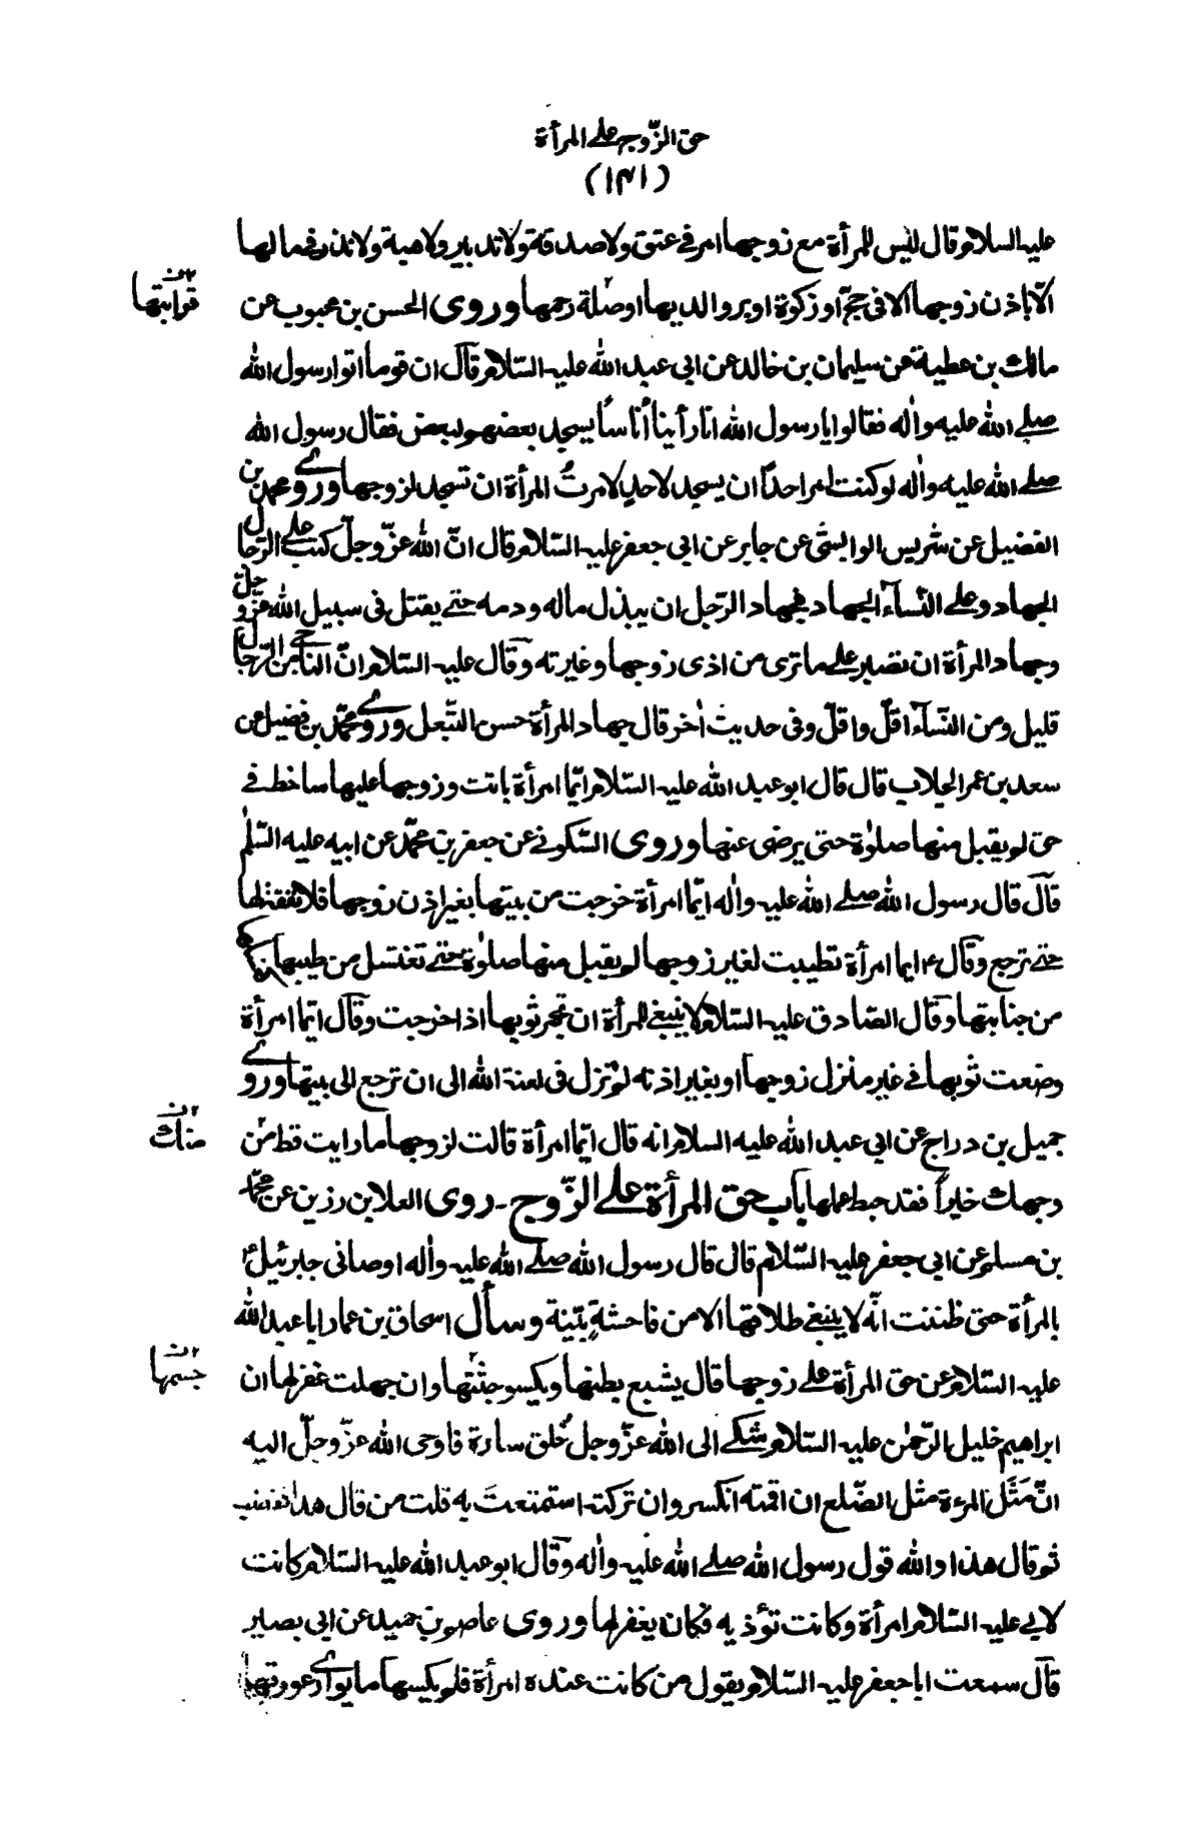 حق الزّوج على المرأة
(١٣١)
عليه السلام قال ليس للمرأة مع زوجها امر في عتق ولا صدقة ولا تدبير ولا هبة ولا نذر في مالها
الّا باذن زوجها الا في حجّ او زكوة او بر والديها او صلة رحمها وروى الحسن بن محبوب عن
قرابتها
مالك بن عطية عن سليمان بن خالد عن ابى عبد الله عليه السّلام قال ان قوما اتوا رسول الله
صلى الله عليه واله فقالوا يا رسول الله انا رأينا أناسًا يسجد بعضهم لبعض فقال رسول الله
صلى الله عليه واله لو كنت امر احدًا ان يسجد لاحد لامرتُ المرأة ان تسجد لزوجها وروى محمد بن
الفضيل عن شريس الوابشى عن جابر عن ابى جعفر عليه السّلام قال انّ الله عزّ وجلّ كتب على الرّجال
الجهاد وعلى النّسآء الجهاد فجهاد الرّجل ان يبذل ماله ودمه حتى يقتل فى سبيل الله عزّ وجل
وجهاد المرأة ان تصبر على ما ترى من اذى زوجها وغيرته وقال عليه السّلام انّ الناجى من الرّجال
قليل ومن النّسآء اقلّ واقلّ وفى حديث اخر قال جهاد المرأة حسن التّبعل وروى محمّد بن فضيل عن
سعد بن عمر الجلاب قال قال ابو عبد الله عليه السّلام ايّما امرأة باتت وزوجها عليها ساخط في
حق لم يقبل منها صلوة حتى يرضى عنها وروى السّكونى عن جعفر بن محمّد عن ابيه عليه السّلم
قال قال رسول الله صلى الله عليه واله ايّما امرأة خرجت من بيتها بغير اذن زوجها فلا نفقة لها
حتى ترجع وقال ع ايما امرأة تطيبت لغير زوجها لم يقبل منها صلوة حتى تغتسل من طيبها كغسلها
من جنابتها وقال الصّادق عليه السّلام لا ينبغى للمرأة ان تجمر ثوبها اذا خرجت وقال ايّما امرأة
وضعت ثوبها في غير منزل زوجها او بغير اذنه لم تزل فى لعنة الله الى ان ترجع الى بيتها وروى
جميل بن دراج عن ابى عبد الله عليه السلام انه قال ايّما امرأة قالت لزوجها ما رايت قط من
منك
وجهك خيراً فقد حبط عملها باب حق المرأة على الزّوج - روى العلا بن رزين عن محمّد
بن مسلم عن ابى جعفر عليه السّلام قال قال رسول الله صلى الله عليه واله اوصانى جبرئيل ع
بالمرأة حتى ظننت انّه لا ينبغى طلاقها الا من فاحشةٍ بيّنة وسأل اسحاق بن عمار ابا عبد الله
عليه السّلام عن حق المرأة على زوجها قال يشبع بطنها ويكسو جثتها وان جهلت غفر لها ان
جسمها
ابراهيم خليل الرّحمن عليه السّلام شكى الى الله عزّ وجل خُلق سارة فاوحى الله عزّ وجلّ اليه
انّ مَثَل المرءة مثل الضّلع ان اقمته انكسر وان تركته استمتعتَ به قلت من قال هذا فغضب
ثم قال هذا والله قول رسول الله صلى الله عليه واله وقال ابو عبد الله عليه السّلام كانت
لابى عليه السّلام امرأة وكانت تؤذيه فكان يغفر لها وروى عاصم بن حميد عن ابى بصير
قال سمعت ابا جعفر عليه السّلام يقول من كانت عنده امرأة فلم يكسها ما يوارى عورتها